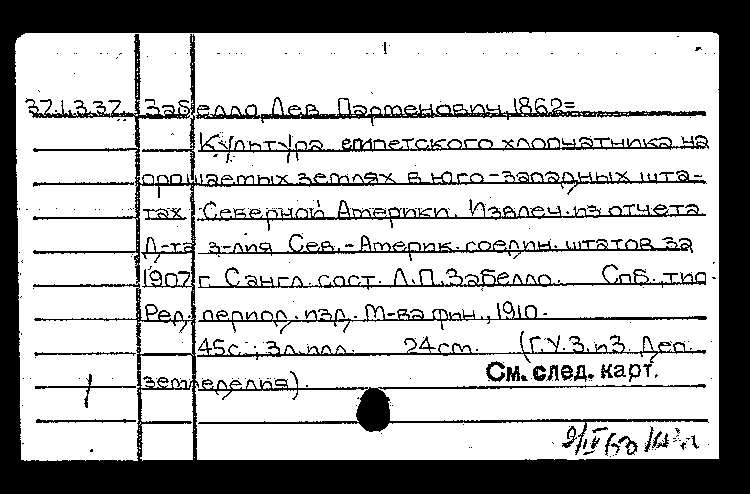 37.1.3.37. Забелло, Лев Парменович, 1862=
Культура египетского хлопчатника на
орошаемых землях в юго-западных шта-
тах Северной Америки. Извлеч. из отчета
Д-та з-лия Сев.-Америк. соедин. штатов за
1907 г. С англ. сост. Л.П.Забелло. Спб., тип.
Ред. период. изд. М-ва фин., 1910.
45с.; 3л.илл. 24cm. (Г.У.З. и З. Деп.
земледелия).
См. след. карт.